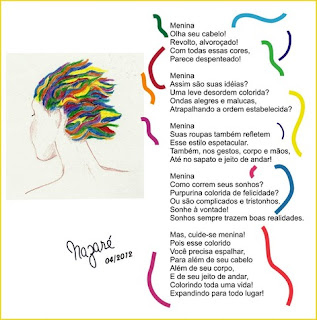 Menina
Olha seu cabelo!
Revolto, alvoroçado!
Com todas essas cores,
Parece despenteado!
Menina
Assim são suas idéias?
Uma leve desordem colorida?
Ondas alegres e malucas,
Atrapalhando a ordem estabelecida?
Menina
Suas roupas também refletem
Esse estilo espetacular.
Também, nos gestos, corpo e mãos,
Até no sapato e jeito de andar!
Menina
Como correm seus sonhos?
Purpurina colorida de felicidade?
Ou são complicados e tristonhos.
Sonhe à vontade!
Sonhos sempre trazem boas realidades.
Mas, cuide-se menina!
Pois esse colorido
Você precisa espalhar,
Para além de seu cabelo
Além de seu corpo,
E de seu jeito de andar,
Colorindo toda uma vida!
Expandindo para todo lugar!
Nazaré
06/2012